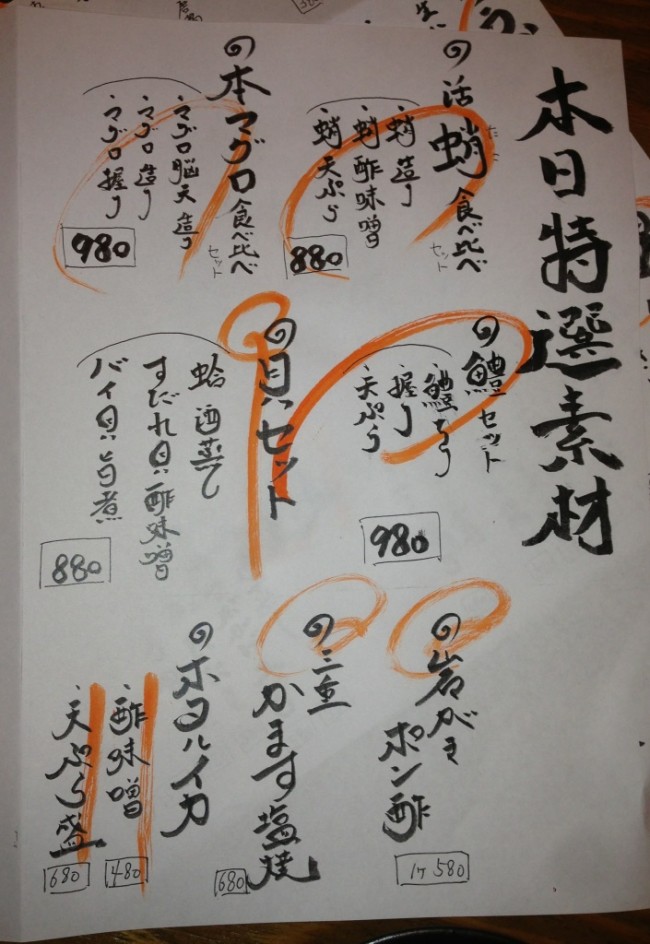 本日特選素材
の活蛸食べ比べセット
たこ
・蛸造り
・蛸酢味噌
・蛸天ぷら
880
の本マグロ食べ比べセット
・マグロ脳天造り
・マグロ造り
・マグロ握り
980
の鱧セット
・鱧ちり
・握り
・天ぷら
980
の貝セット
蛤酒蒸し
すだれ貝酢味噌
バイ貝旨煮
880
の岩がき
ポン酢
1ヶ580
の三重
かます塩焼
680
のホタルイカ
・酢味噌
480
・天ぷら盛
680